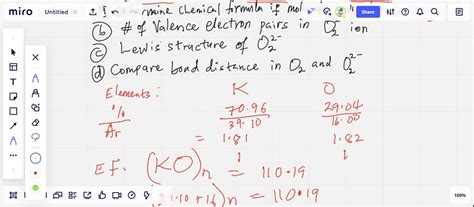 miro Untitled Share
Determine chemical formula if mol
(b) # of Valence electron pairs in O₂²⁻ ion
(c) Lewis structure of O₂²⁻
(d) Compare bond distance in O₂ and O₂²⁻
Elements: K O
%/Ar 70.96/39.10 29.04/16.00
= 1.81 1.82
1 1
E.F. (KO)n = 110.19
(39.10 + 16)n = 110.19
100%